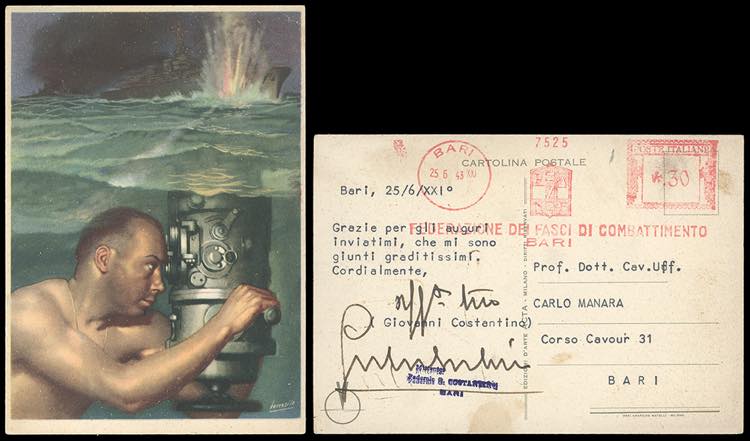 BARI
25 6 43 XXI
7525
CARTOLINA POSTALE
POSTE ITALIANE
30
Bari, 25/6/XXI°
FEDERAZIONE DEI FASCI DI COMBATTIMENTO
BARI
Grazie per gli auguri
inviatimi, che mi sono
giunti graditissimi.
Cordialmente,
(Giovanni Costantino)
COSTANTINO
BARI
Prof. Dott. Cav.Uff.
CARLO MANARA
Corso Cavour 31
BARI
EDIZIONI D'ARTE
MILANO